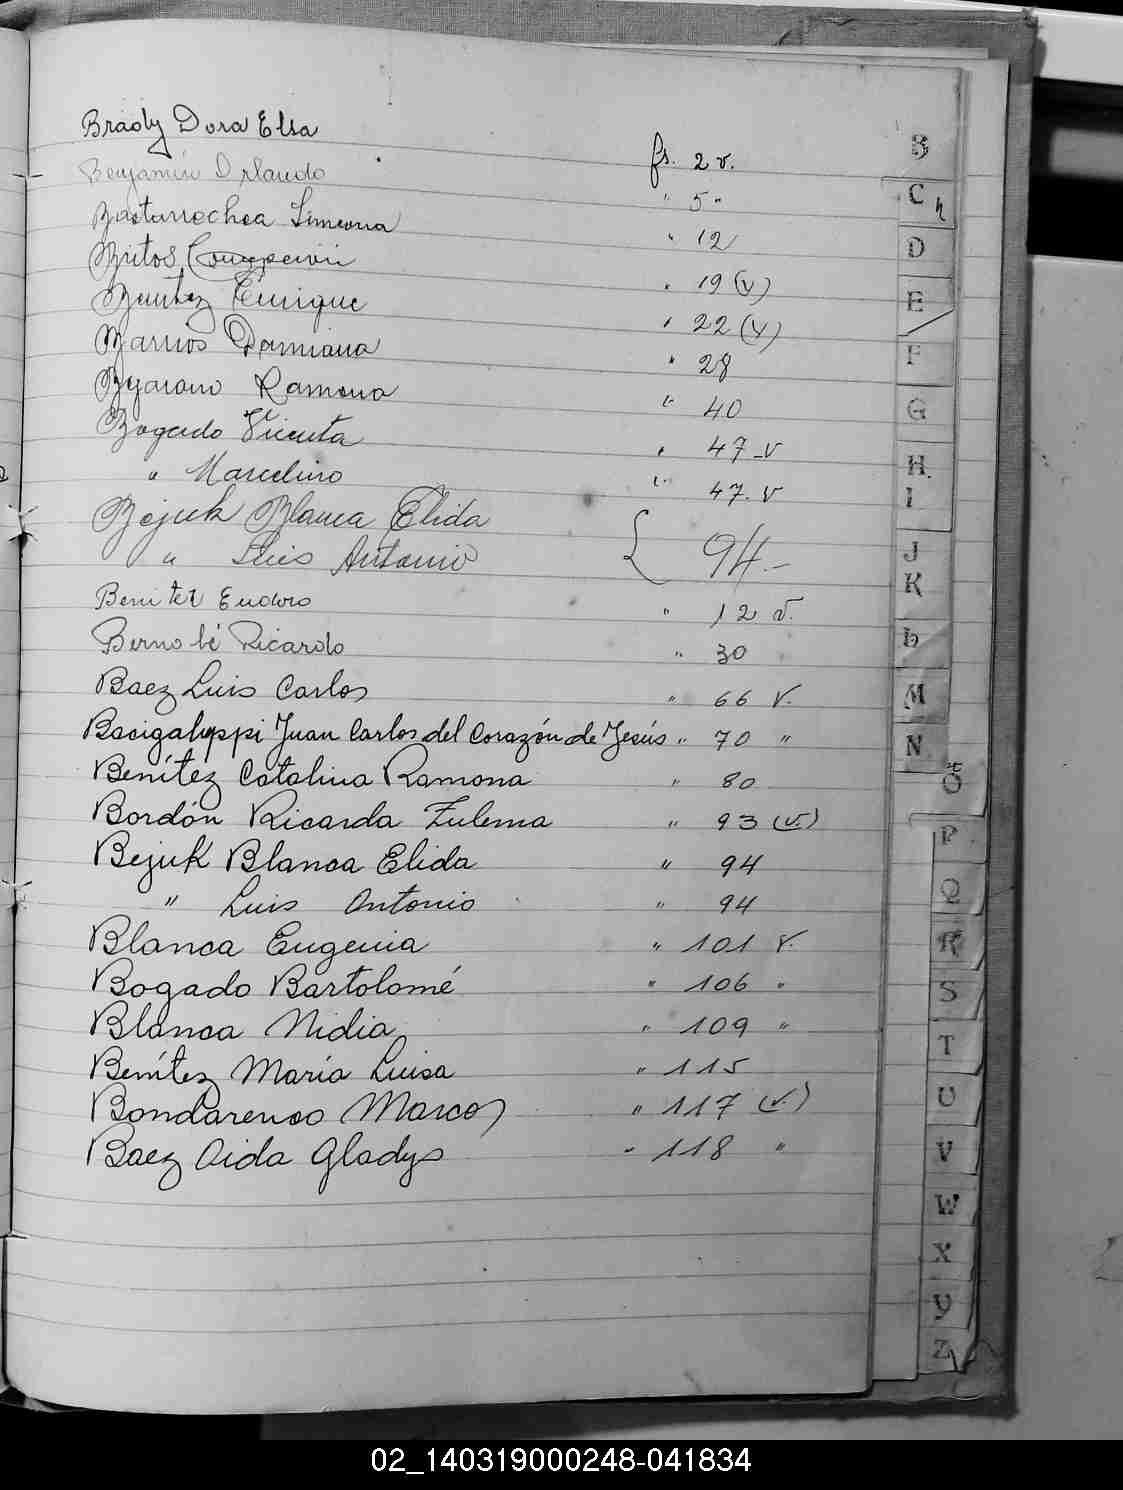 Brady Dora Elsa fs. 2 v.
Benjamin Orlando " 5 "
Bastarrechea Simeona " 12
Britos " 19 (v)
Benitez Enrique " 22 (v)
Barrios Damiana " 28
Ramona " 40
Bogado Vicenta " 47 v
" Marcelino " 47. v
Bejuk Blanca Elida { 94.-
" Luis Antonio
Benitez Eudoro " 12 v.
Bernobé Ricardo " 30
Baez Luis Carlos " 66 v.
Bacigaluppi Juan Carlos del Corazón de Jesús " 70 "
Benítez Catalina Ramona " 80
Bordón Ricarda Zulema " 93 (v.)
Bejuk Blanca Elida " 94
" Luis Antonio " 94
Blanca Eugenia " 101 v.
Bogado Bartolomé " 106 "
Blanca Nidia " 109 "
Benítez María Luisa " 115
Bondarenco Marcos " 117 (v.)
Baez Aida Gladys " 118 "
B
C h
D
E
F
G
H.
I
J
K
L
M
N
O
P
Q
R
S
T
U
V
W
X
Y
Z
02_140319000248-041834